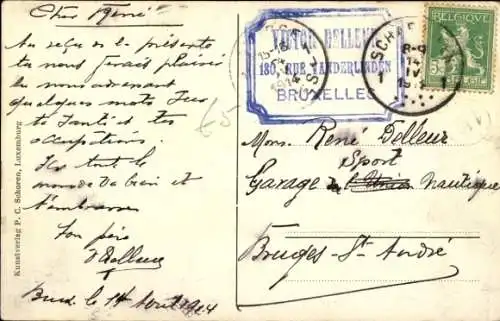 Cher René
Au reçu de la présente
tu nous ferais plaisir
en nous adressant
quelques mots sur
ta santé et tes
occupations
Ici tout le
monde va bien et
t'embrasse
Ton père
VDelleur
Brux. le 14 Avril 1914
Kunstverlag P. C. Schoren, Luxemburg
VICTOR DELLEUR
180, RUE VANDERLINDEN
BRUXELLES
8-9
14
IV
BELGIQUE
5 5
BELGIË
Mons. René Delleur
Sport
Garage de l'Union Nautique
Bruges-St André